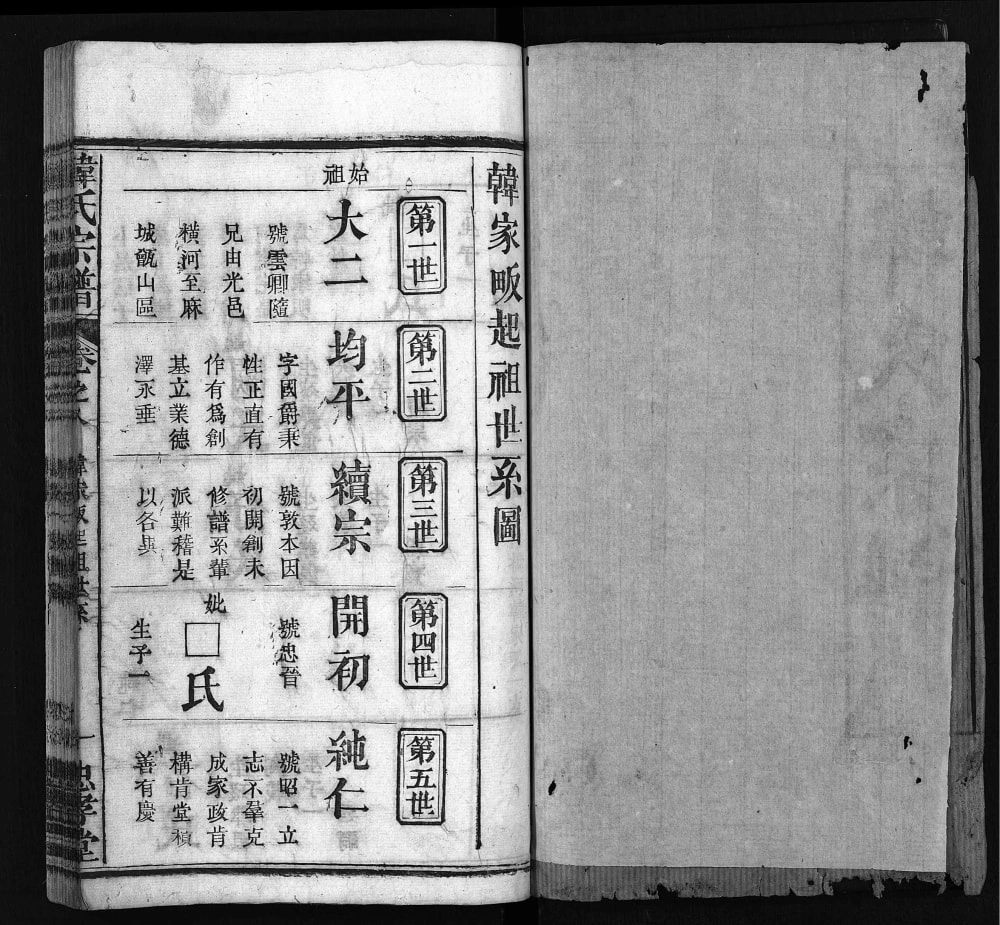 韓家畈起祖世系圖
第一世
始祖
大二
號雲卿隨
兄由光邑
橫河至麻
城㽃山區
第二世
均平
字國爵秉
性正直有
作有爲創
基立業德
澤永垂
第三世
續宗
號敦本因
初開創未
修譜系輩
派難稽是
以各
第四世
開初
號忠晉
妣
□
氏
生子一
第五世
純仁
號昭一立
志不羣克
成家政肯
構肯堂積
善有慶
韓氏宗譜
卷之八
韓家畈起祖世系
一
忠孝堂